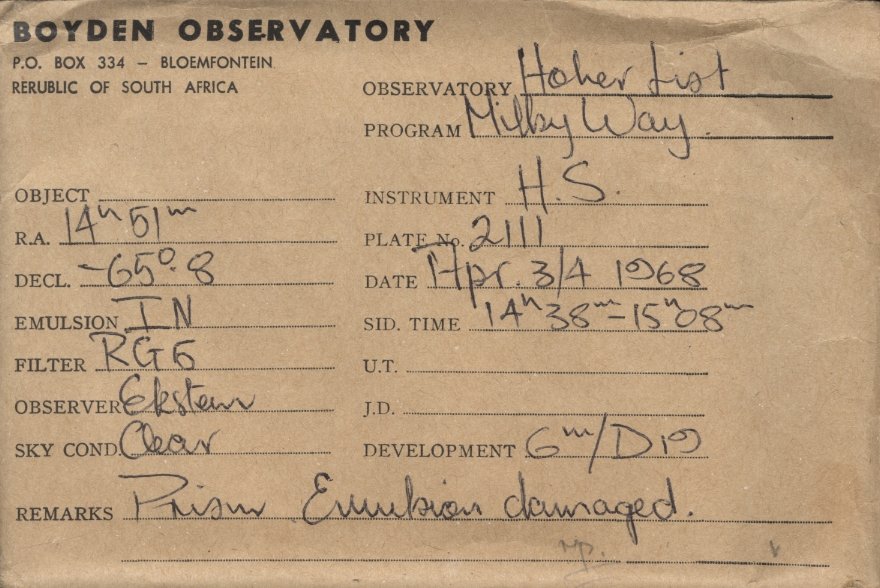 BOYDEN OBSERVATORY
P.O. BOX 334 – BLOEMFONTEIN
RERUBLIC OF SOUTH AFRICA
OBSERVATORY Hoher List
PROGRAM Milky Way.
OBJECT
INSTRUMENT H.S.
R.A. 14h 51m
PLATE No. 2111
DECL. -65°.8
DATE Apr. 3/4 1968
EMULSION IN
SID. TIME 14h 38m–15h 08m
FILTER RG5
U.T.
OBSERVER Ekstein
J.D.
SKY COND. Clear
DEVELOPMENT 6m/D19
REMARKS Prism Emulsion damaged.